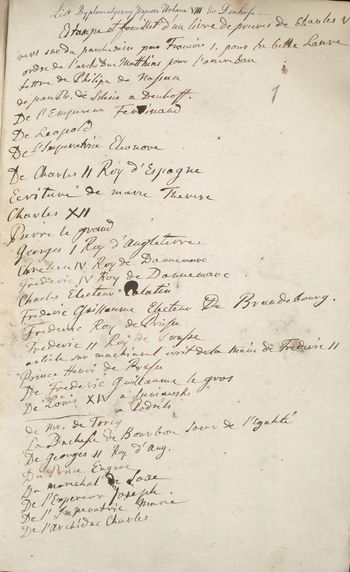 List Dyplomatyczny Papieża Urbana VIII do Denhofa
Estampe et feuillet d'un livre de prieres de Charles V
vers sur du parchemin pour François I. pour la belle Laure
ordre de l'archiduc Matthias pour l'
lettre de Philipe de Nassau
de Jean Fr. de Silesie a Denhoff.
1
De l'Empereur Ferdinand
De Leopold
De l'Imperatrice Eleonore
De Charles II Roy d'Espagne
Ecriture de marie Therese
Charles XII
Pierre le grand
Georges I Roy d'Angleterre
Chretien IV Roy de Dannemarc
Frederic IV Roy de Dannemarc
Charles Electeur Palatin
Frederic Guillaume Electeur De Brandebourg.
Frederic Roy de Prusse
Frederic II Roy de Prusse
article sur machiavel ecrit de la main de Frederic II
Prince Henri de Prusse
De Frederic Guillaume le gros
De Louis XIV a
de Mr. de Torcy
La Duchesse de Bourbon soeur de l'Egalité
De Georges II Roy d'Ang.
Du Prince Eugene
Du marechal de Saxe
De l'Empereur Joseph.
De l'Imperatrice Marie
De l'Archiduc Charles